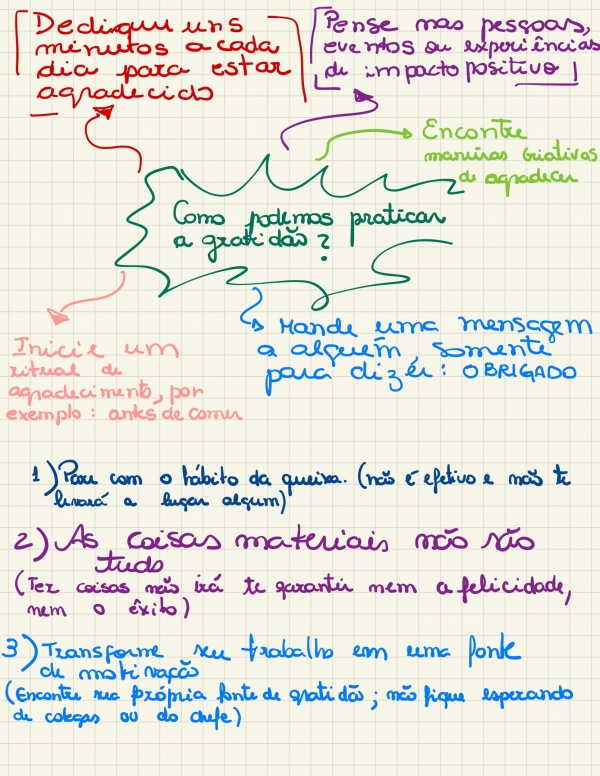 Dedique uns
minutos a cada
dia para estar
agradecido
Pense nas pessoas,
eventos ou experiências
de impacto positivo
Encontre
maneiras criativas
de agradecer
Como podemos praticar
a gratidão?
Inicie um
ritual de
agradecimento, por
exemplo: antes de comer
Mande uma mensagem
a alguém somente
para dizer: OBRIGADO
1) Pare com o hábito da queixa. (não é efetivo e não te
levará a lugar algum)
2) As coisas materiais não são
tudo
(Ter coisas não irá te garantir nem a felicidade,
nem o êxito)
3) Transforme seu trabalho em uma fonte
de motivação
(Encontre sua própria fonte de gratidão; não fique esperando
de colegas ou do chefe)